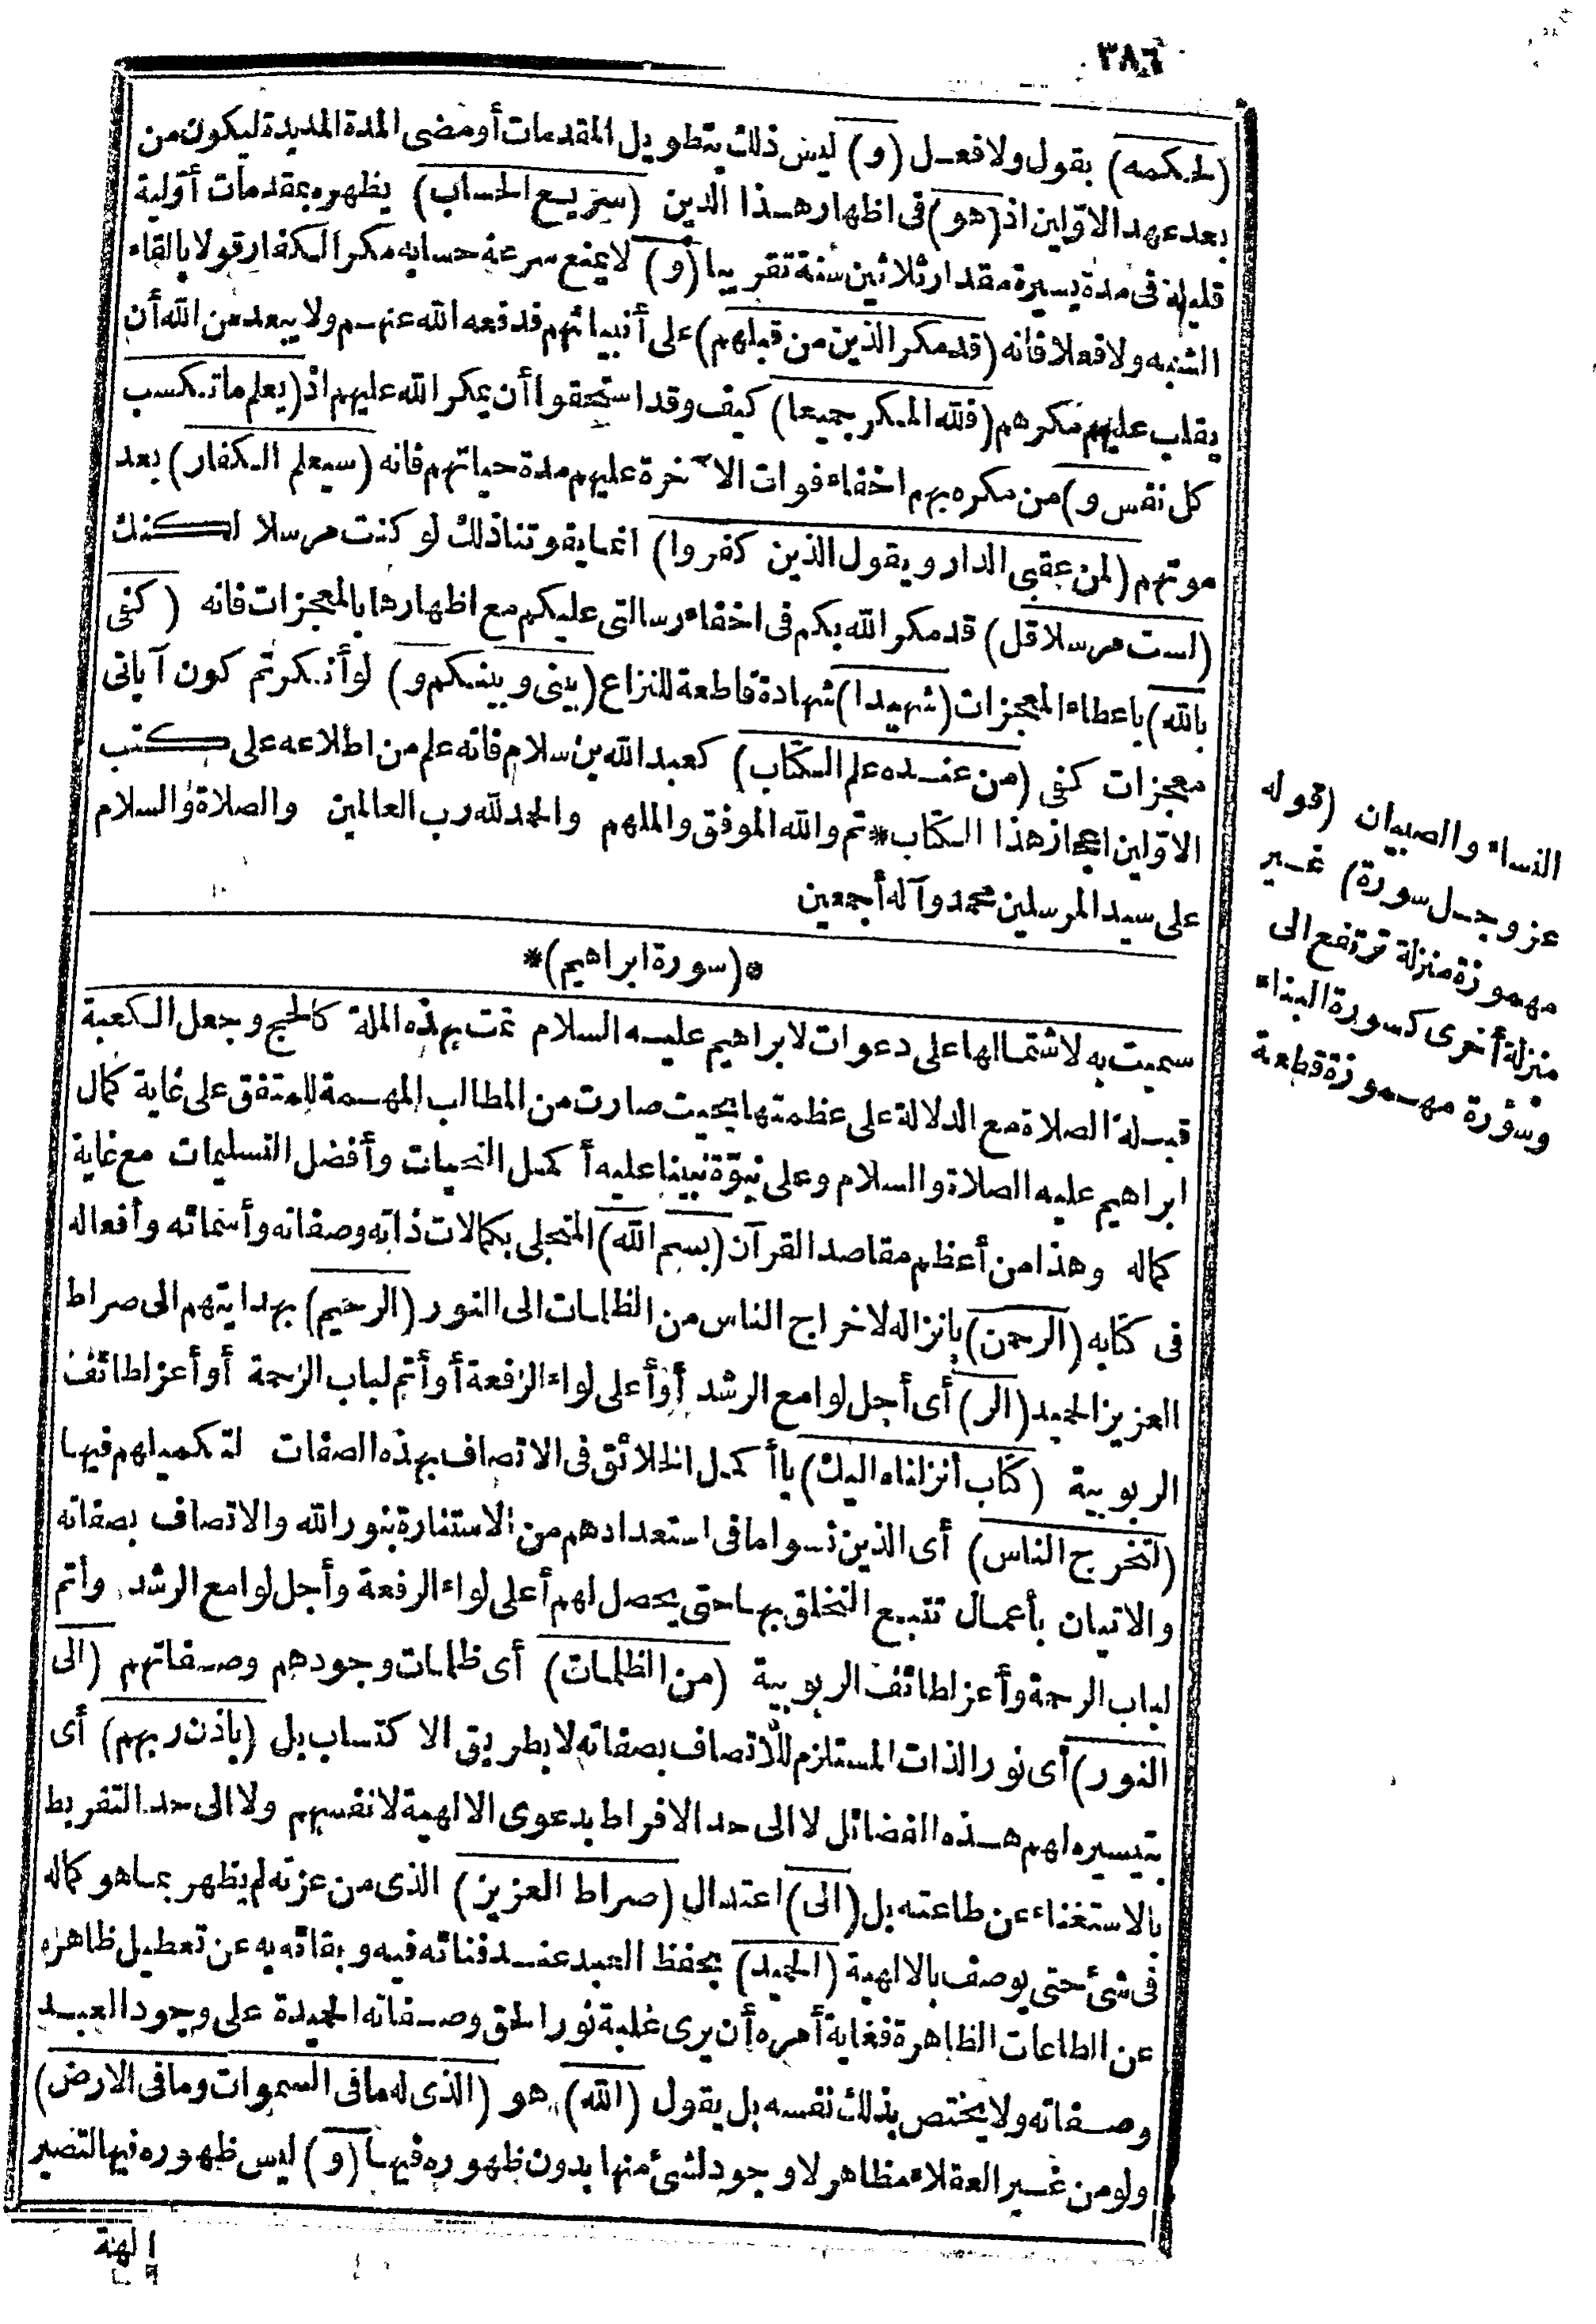 ٣٨٦
(لحكمه) بقول ولا فعل (و) ليس ذلك بتطويل المقدمات أو مضى المدة المديدة ليكون من
بعد عهد الاوّلين اذ (هو) فى اظهار هذا الدين (سريع الحساب) يظهره بمقدمات أوّلية
قليلة فى مدة يسيرة مقدار ثلاثين سنة تقريبا (و) لا يمنع سرعة حسابه مكر الكفار قولا بالقاء
الشبه ولا فعلا فانه (قد مكر الذين من قبلهم) على أنبيائهم فدفعه الله عنهم ولا يبعد من الله أن
يقلب عليهم مكرهم (فلله المكر جميعا) كيف وقد استحقوا أن يمكر الله عليهم اذ (يعلم ما تكسب
كل نفس و) من مكره بهم اخفاء فوات الآخرة عليهم مدة حياتهم فانه (سيعلم الكفار) بعد
موتهم (لمن عقبى الدار ويقول الذين كفروا) انما يفوتنا ذلك لو كنت مرسلا لكنك
(لست مرسلا قل) قد مكر الله بكم فى اخفاء رسالتى عليكم مع اظهارها بالمعجزات فانه (كفى
بالله) باعطاء المعجزات (شهيدا) شهادة قاطعة للنزاع (بينى وبينكم و) لو أنكرتم كون آياتى
معجزات كفى (من عنده علم الكتاب) كعبد الله بن سلام فانه علم من اطلاعه على كتب
الاوّلين اعجاز هذا الكتاب * تم والله الموفق والملهم والحمد لله رب العالمين والصلاة والسلام
على سيد المرسلين محمد وآله أجمعين
*(سورة ابراهيم)*
سميت به لاشتمالها على دعوات لابراهيم عليه السلام تمت بهذه الملة كالحج وجعل الكعبة
قبلة الصلاة مع الدلالة على عظمتها بحيث صارت من المطالب المهمة للمتفق على غاية كمال
ابراهيم عليه الصلاة والسلام وعلى نبوّة نبينا عليه أكمل التحيات وأفضل التسليمات مع غاية
كماله وهذا من أعظم مقاصد القرآن (بسم الله) المتجلى بكمالات ذاته وصفاته وأسمائه وأفعاله
فى كتابه (الرحمن) بانزاله لاخراج الناس من الظلمات الى النور (الرحيم) بهدايتهم الى صراط
العزيز الحميد (الر) أى أجل لوامع الرشد أو أعلى لواء الرفعة أو أتم لباب الرحمة أو أعز لطائف
الربوبية (كتاب أنزلناه اليك) يا أكمل الخلائق فى الاتصاف بهذه الصفات لتكميلهم فيها
(لتخرج الناس) أى الذين نسوا ما فى استعدادهم من الاستنارة بنور الله والاتصاف بصفاته
والاتيان بأعمال تتبع التخلق بها حتى يحصل لهم أعلى لواء الرفعة وأجل لوامع الرشد وأتم
لباب الرحمة وأعز لطائف الربوبية (من الظلمات) أى ظلمات وجودهم وصفاتهم (الى
النور) أى نور الذات المستلزم للاتصاف بصفاته لا بطريق الاكتساب بل (باذن ربهم) أى
بتيسيره لهم هذه الفضائل لا الى حد الافراط بدعوى الالهية لانفسهم ولا الى حد التفريط
بالاستغناء عن طاعته بل (الى) اعتدال (صراط العزيز) الذى من عزته لم يظهر بما هو كماله
فى شئ حتى يوصف بالالهية (الحميد) بحفظ العبد عند فنائه فيه وبقائه به عن تعطيل ظاهره
عن الطاعات الظاهرة فغاية أمره أن يرى غلبة نور الحق وصفاته الحميدة على وجود العبد
وصفاته ولا يختص بذلك نفسه بل يقول (الله) هو (الذى له ما فى السموات وما فى الارض)
ولو من غير العقلاء مظاهر لا وجود لشئ منها بدون ظهوره فيها (و) ليس ظهوره فيها لتصير
الهية
النساء والصبيان (قوله
عز وجل سورة) غير
مهموزة منزلة ترتفع الى
منزلة أخرى كسورة البناء
وسؤرة مهموزة قطعة